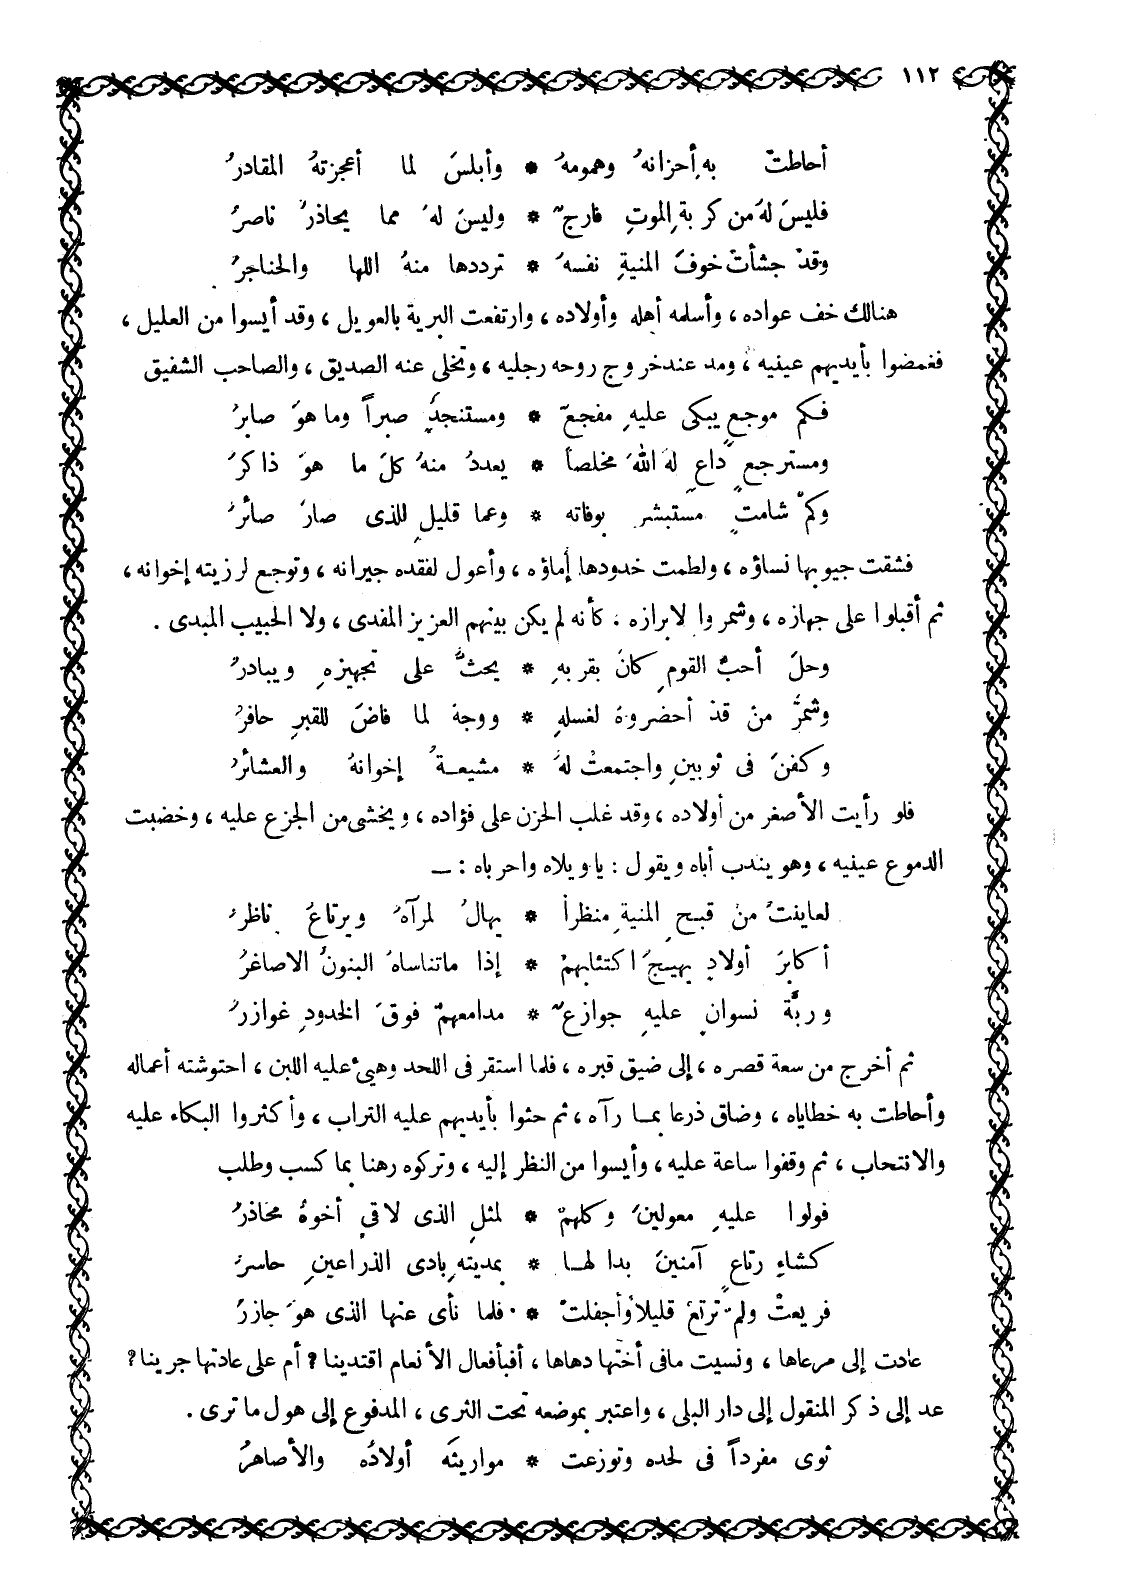 ١١٢
أحاطتْ به أحزانهُ وهمومهُ * وأبلسَ لما أعجزتهُ المقادرُ
فليسَ لهُ من كربةِ الموتِ فارجٌ * وليسَ لهُ مما يحاذرُ ناصرُ
وقدْ جشأتْ خوفَ المنيةِ نفسهُ * ترددها منهُ اللها والحناجرُ
هنالك خف عواده ، وأسلمه أهله وأولاده ، وارتفعت البرية بالعويل ، وقد أيسوا من العليل ،
فغمضوا بأيديهم عينيه ، ومد عند خروج روحه رجليه ، وتخلى عنه الصديق ، والصاحب الشفيق
فكم موجعٍ يبكى عليهِ مفجعٌ * ومستنجدٍ صبراً وما هوَ صابرُ
ومسترجعٍ داعٍ لهُ اللهَ مخلصاً * يعددُ منهُ كلَ ما هوَ ذاكرُ
وكمْ شامتٍ مستبشرٍ بوفاته * وعما قليلٍ للذى صارَ صائرُ
فشقت جيوبها نساؤه ، ولطمت خدودها إماؤه ، وأعول لفقده جيرانه ، وتوجع لرزيته إخوانه ،
ثم أقبلوا على جهازه ، وشمروا لابرازه ، كأنه لم يكن بينهم العزيز المفدى ، ولا الحبيب المبدى .
وحلَ أحبُ القومِ كانَ بقربهِ * يحثُّ على تجهيزهِ ويبادرُ
وشمرَّ منْ قدْ أحضروهُ لغسلهِ * ووجهَ لما فاضَ للقبرِ حافرُ
وكفنَ فى ثوبينِ واجتمعتْ لهُ * مشيعـةُ إخوانهُ والعشائرُ
فلو رأيت الأصغر من أولاده ، وقد غلب الحزن على فؤاده ، ويخشى من الجزع عليه ، وخضبت
الدموع عينيه ، وهو يندب أباه ويقول : ياويلاه واحرباه : ــ
لعاينتَ منْ قبحِ المنيةِ منظراً * يهالُ لمرآهُ ويرتاعُ ناظرُ
أكابرَ أولادٍ يهيجُ اكتئابهمْ * إذا ماتناساهُ البنونُ الاصاغرُ
وربَّة نسوانٍ عليهِ جوازعٌ * مدامعهمْ فوقَ الخدودِ غوازرُ
ثم أخرج من سعة قصره ، إلى ضيق قبره ، فلما استقر فى اللحد وهيئ عليه اللبن ، احتوشته أعماله
وأحاطت به خطاياه ، وضاق ذرعا بمـا رآه ، ثم حثوا بأيديهم عليه التراب ، وأكثروا البكاء عليه
والانتحاب ، ثم وقفوا ساعة عليه ، وأيسوا من النظر إليه ، وتركوه رهنا بما كسب وطلب
فولوا عليهِ معولينَ وكلهمْ * لمثلِ الذى لاقى أخوهُ محاذرُ
كشاءِ رتاعٍ آمنينَ بدا لهـا * بمديتهِ بادى الذراعينِ حاسرُ
فريعتْ ولمْ ترتعْ قليلاً وأجفلتْ * فلما نأى عنها الذى هوَ جازرُ
عادت إلى مرعاها ، ونسيت مافى أختها دهاها ، أفبأفعال الأنعام اقتدينا ؟ أم على عادتها جرينا ؟
عد إلى ذكر المنقول إلى دار البلى ، واعتبر بموضعه تحت الثرى ، المدفوع إلى هول ماترى .
ثوى مفرداً فى لحده وتوزعت * مواريثَه أولادُه والأصاهرُ